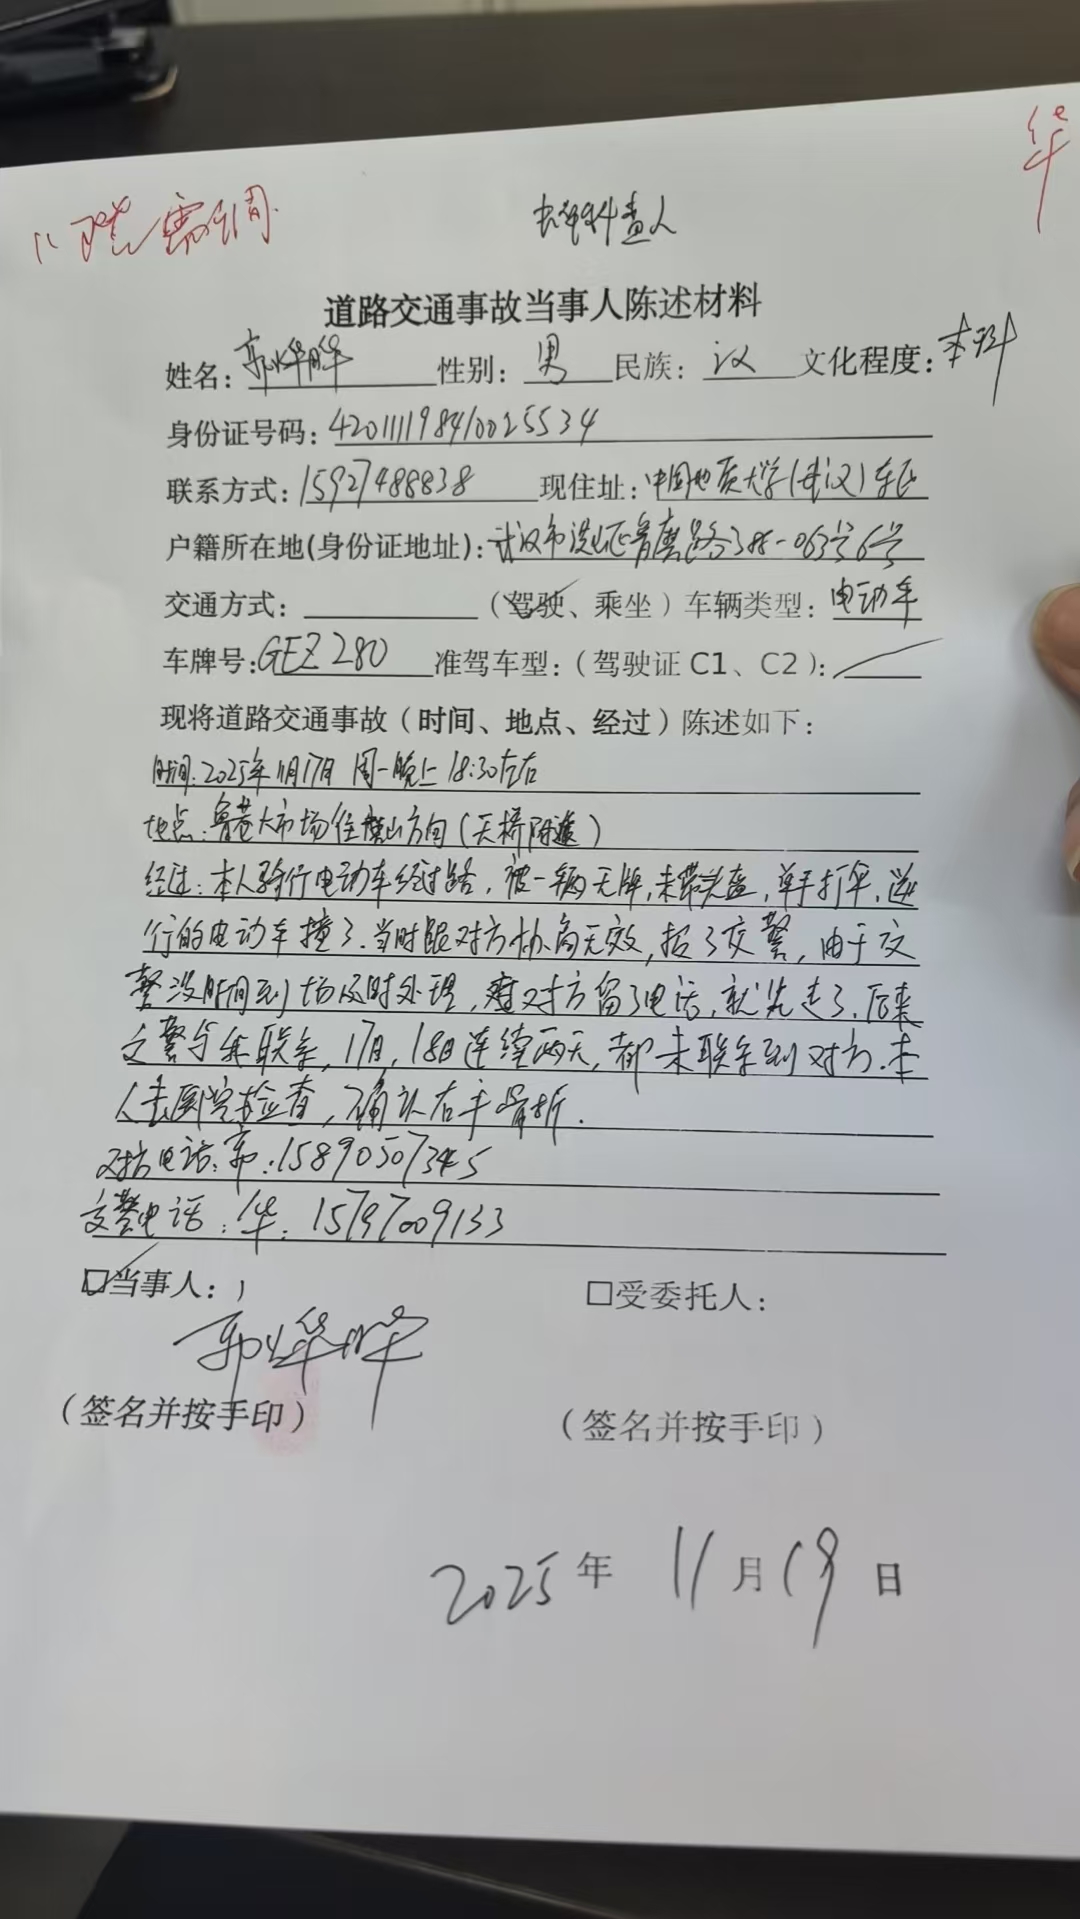 华
需调
查人
道路交通事故当事人陈述材料
姓名：郭烨晔 性别：男 民族：汉 文化程度：本科
身份证号码：420111198410025534
联系方式：15927488838 现住址：中国地质大学(武汉)东区
户籍所在地(身份证地址)：武汉市洪山区鲁磨路388-063号6号
交通方式： （驾驶、乘坐）车辆类型：电动车
车牌号：GEZ280 准驾车型：（驾驶证 C1、C2）：
现将道路交通事故（时间、地点、经过）陈述如下：
时间：2025年11月17日 周一晚上18:30左右
地点：鲁巷大市场往 山方向（天桥附近）
经过：本人骑行电动车经过路，被一辆无牌，未带头盔，单手打伞，逆
行的电动车撞了。当时跟对方协商无效，报了交警，由于交
警没时间到场及时处理，对方留了电话，就先走了。后来
交警与其联系，17日，18日连续两天，都未联系到对方。本
人去医院检查，确认右手骨折。
对方电话：郭：15890507345
交警电话：华：15797009133
☑当事人：
□受委托人：
郭烨晔
（签名并按手印）
（签名并按手印）
2025年 11月19日